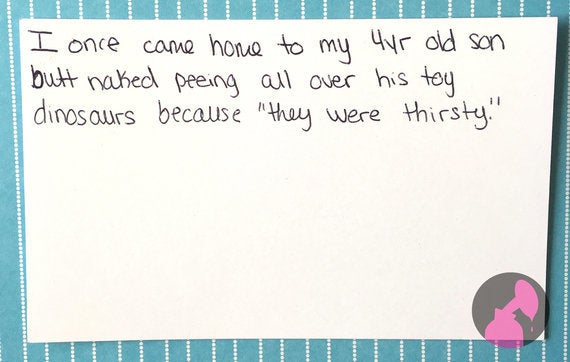 I once came home to my 4yr old son
butt naked peeing all over his toy
dinosaurs because "they were thirsty."